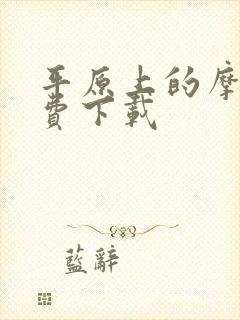 平原上的摩
費下載
藍辭